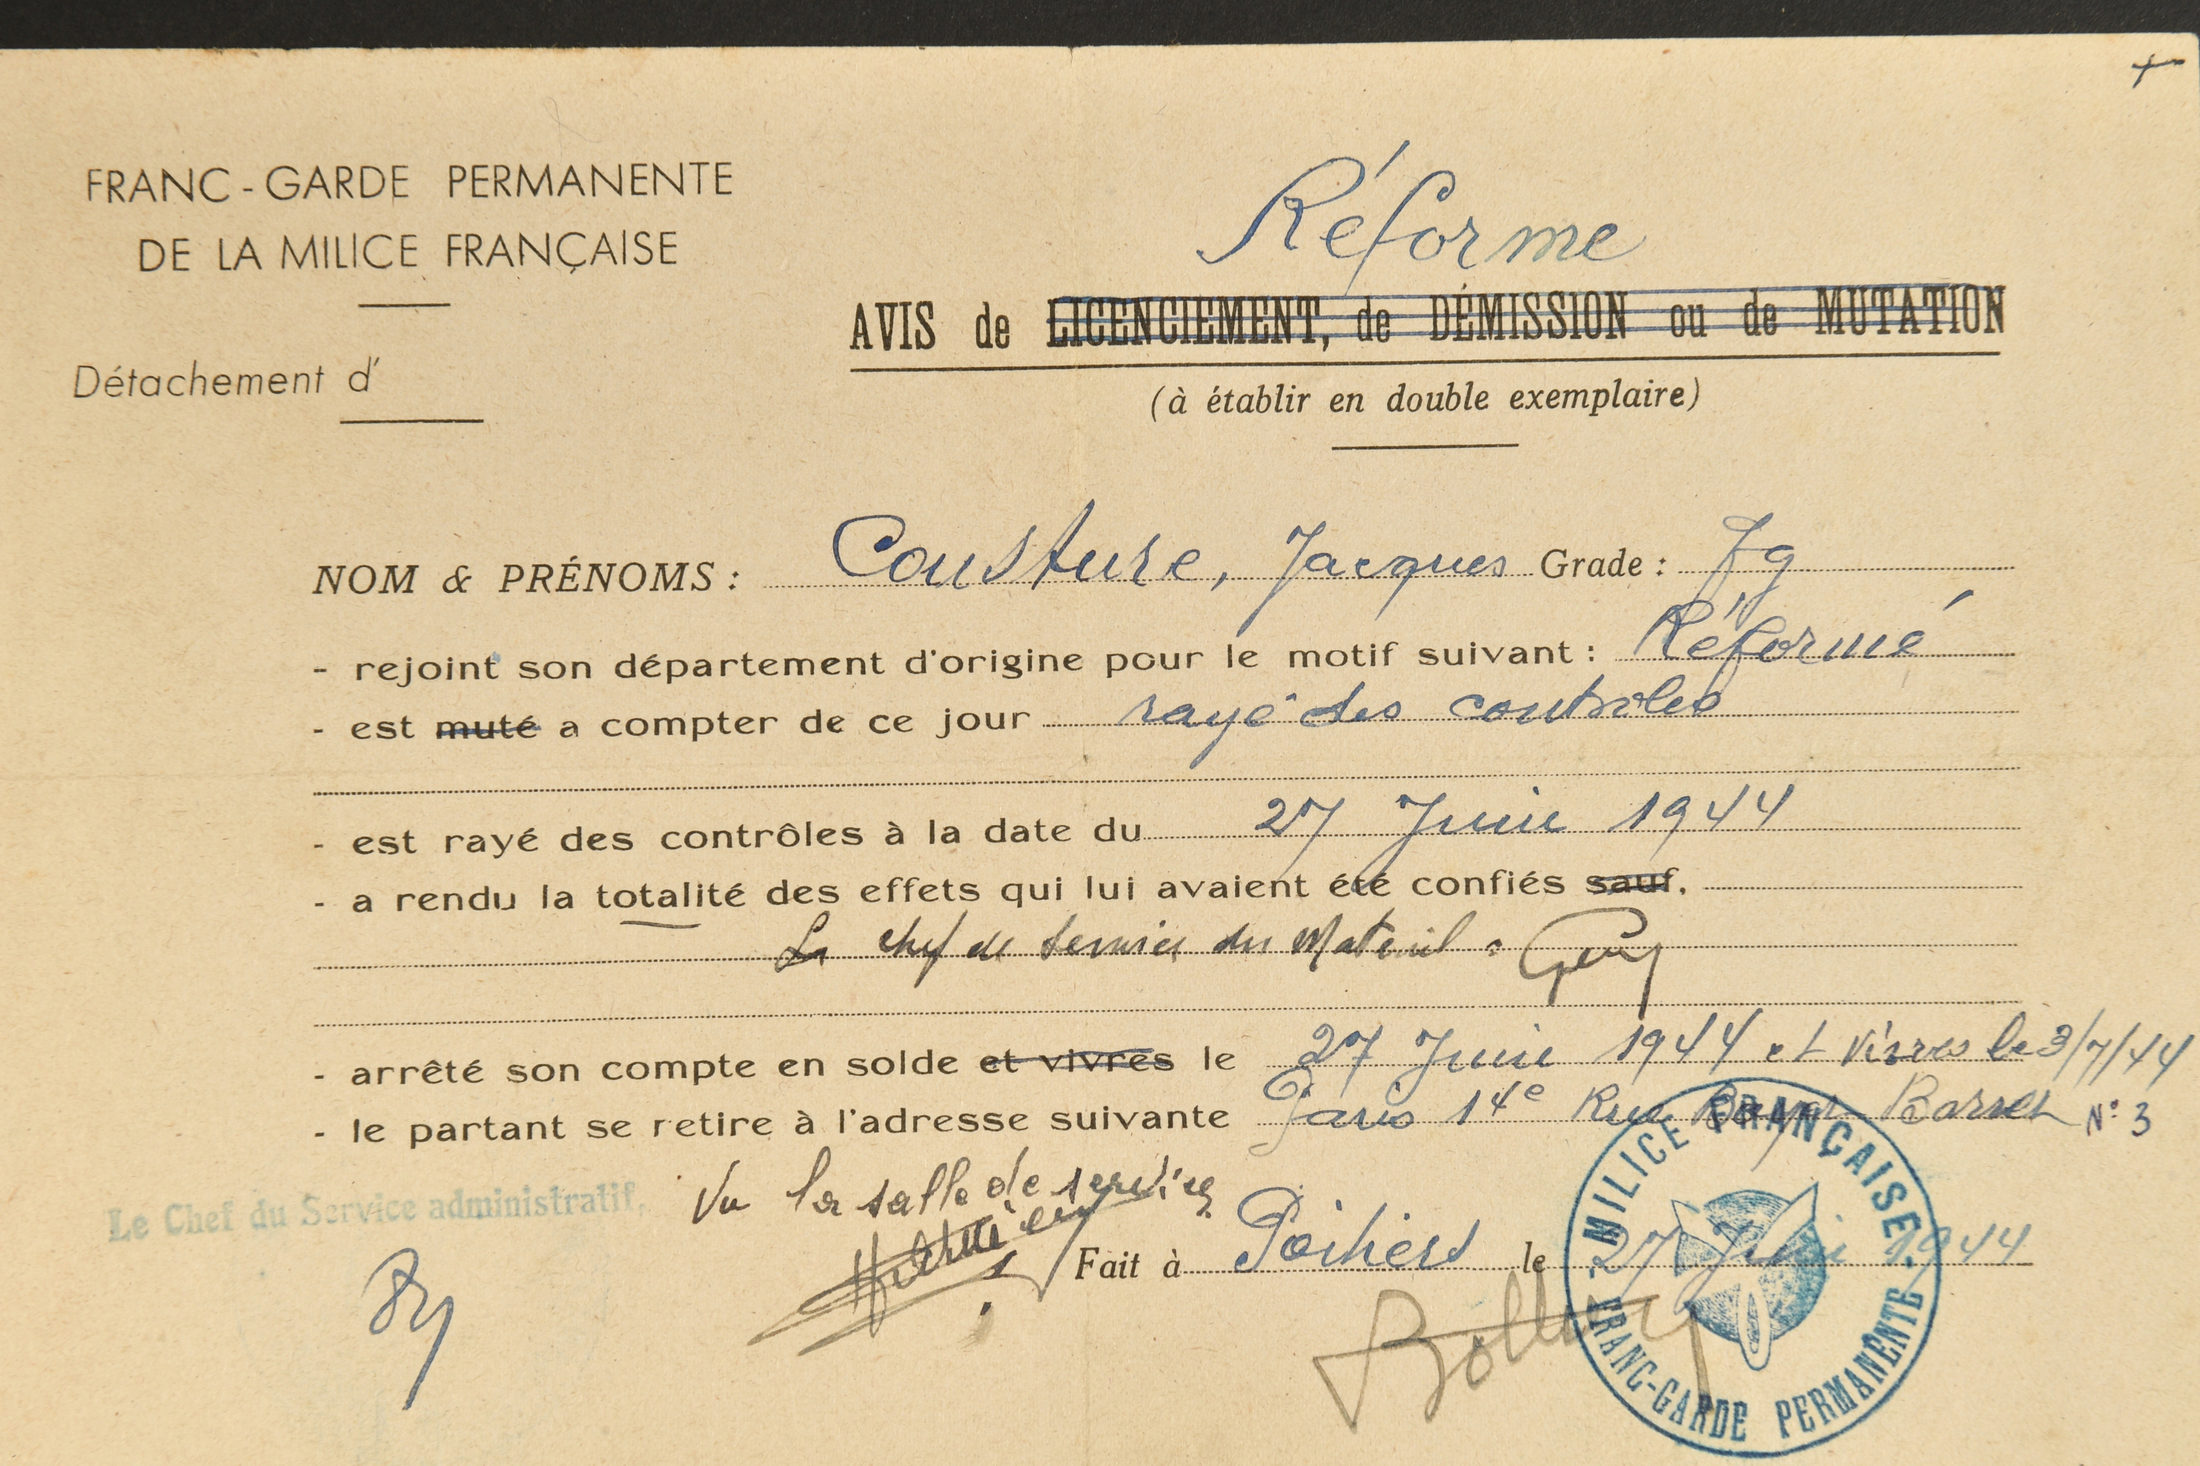 FRANC-GARDE PERMANENTE
DE LA MILICE FRANÇAISE
Détachement d'
Réforme
AVIS de LICENCIEMENT, de DÉMISSION ou de MUTATION
(à établir en double exemplaire)
NOM & PRÉNOMS : Cousture, Jacques Grade : fg
- rejoint son département d'origine pour le motif suivant : Réformé
- est muté a compter de ce jour rayé des contrôles
- est rayé des contrôles à la date du 27 Juin 1944
- a rendu la totalité des effets qui lui avaient été confiés sauf.
Le chef de service du Matériel
- arrêté son compte en solde et vivres le 27 Juin 1944 et vivres le 3/7/44
- le partant se retire à l'adresse suivante Paris 14e Rue Barret N° 3
Le Chef du Service administratif,
Vu la salle de service
Fait à Poitiers le 27 Juin 1944
MILICE FRANÇAISE
FRANC-GARDE PERMANENTE